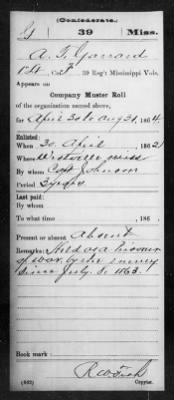 (Confederate.)
G 39 Miss.
A. T. Garrard
Co. 39 Reg't Mississippi Vols.
Appears on
Company Muster Roll
of the organization named above,
for April 30 to Aug 31, 1864.
Enlisted:
When 30 April, 1862
Where Westville Miss
By whom Capt Johnson
Period 3 years
Last paid:
By whom
To what time , 186 .
Present or absent Absent
Remarks: Held as a Prisoner
of war by the enemy
since July 8, 1863.
Book mark:
(642) Copyist.